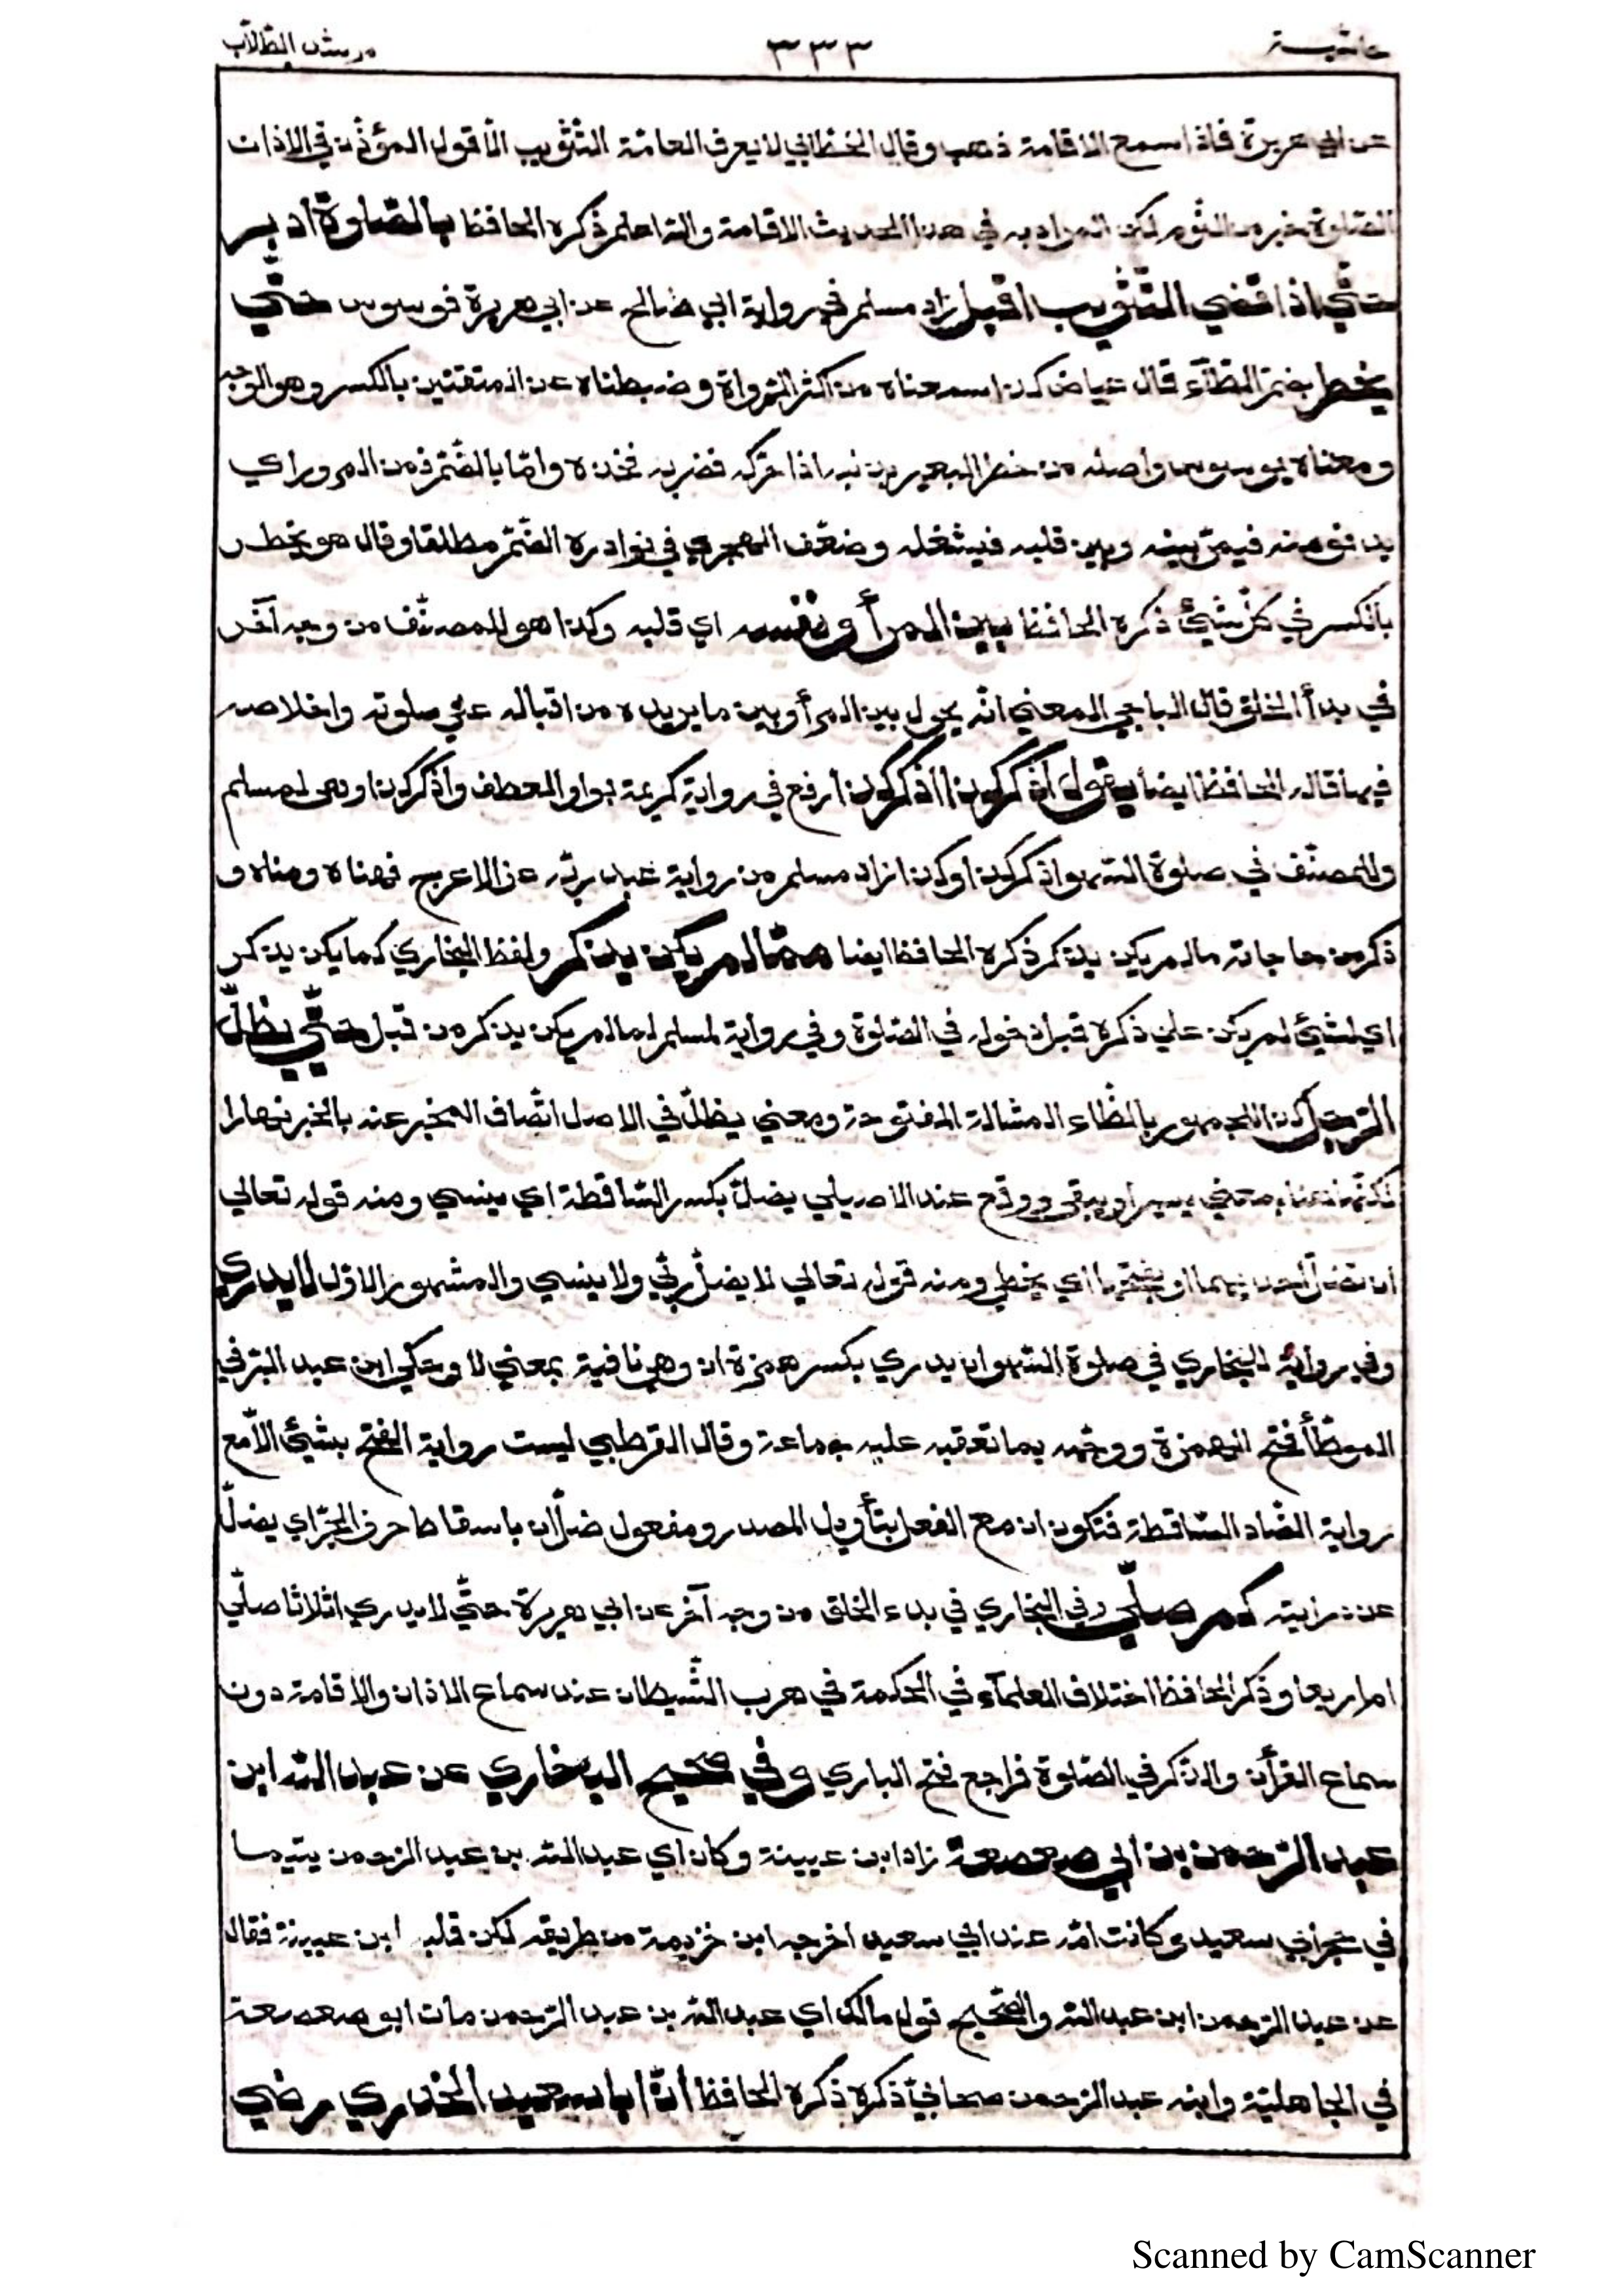 حاشية ٣٣٣ مرشد الطلاب
عن ابي هريرة فاذا سمع الاقامة ذهب وقال الخطابي لا يعرف العامّة التثويب الّا قول المؤذّن في الاذان
الصّلوة خير من النّوم لكن المراد به في هذا الحديث الاقامة والله اعلم ذكره الحافظ بالصّلوة ادبر
حتّي اذا قضي التّثويب اقبل زاد مسلم في رواية ابي صالح عن ابي هريرة فوسوس حتّي
يخطر بضمّ الطّآء قال عياض كذا سمعناه من اكثر الرّواة وضبطناه عن المتقنين بالكسر وهو الوجه
ومعناه يوسوس واصله من خطر البعير بذنبه اذا حرّكه فضرب به فخذه وامّا بالضّمّ فمن المرور اي
يدنو منه فيمرّ بينه وبين قلبه فيشغله وضعّف الهجري في نوادره الضّمّ مطلقا وقال هو يخطر
بالكسر في كلّ شيئ ذكره الحافظ بين المرأ ونفسه اي قلبه وكذا هو للمصنّف من وجه آخر
في بدأ الخلق قال الباجي المعني انّه يحول بين المرأ وبين ما يريده من اقباله علي صلوته واخلاصه
فيها قاله الحافظ ايضا يقول اذكر كذا اذكر كذا ارفع في رواية كريمة بواو العطف واذكر كذا وهي لمسلم
وللمصنّف في صلوة السّهو اذكر كذا وكذا زاد مسلم من رواية عبد ربّه عن الاعرج فهنّاه ومنّاه و
ذكره من حاجاته مالم يكن يذكر ذكره الحافظ ايضا ممّا لم يكن يذكر ولفظ البخاري لما يكن يذكر
اي لشيئ لم يكن علي ذكره قبل دخوله في الصّلوة وفي رواية لمسلم لما لم يكن يذكر من قبل حتّي يظلّ
الرّجل كذا للجمهور بالظّاء المشالة المفتوحة ومعني يظلّ في الاصل اتّصاف المخبر عنه بالخبر نهارا
لكنّها هنا بمعني يصير او يبقي ووقع عند الاصيلي يضلّ بكسر السّاقطة اي ينسي ومنه قوله تعالي
ان تضلّ احديهما او بفتحها اي يخطي ومنه قوله تعالي لا يضلّ ربّي ولا ينسي والمشهور الاوّل لا يدري
وفي رواية للبخاري في صلوة السّهو ان يدري بكسر همزة ان وهي نافية بمعني لا وحكي ابن عبد البرّ في
الموطّأ فتح الهمزة ووجّهه بما تعقّبه عليه جماعة وقال القرطبي ليست رواية الفتح بشيئ الّا مع
رواية الضّاد السّاقطة فتكون ان مع الفعل بتأويل المصدر ومفعول ضلّ ان باسقاط حرف الجرّ اي يضلّ
عن درايته كم صلّي وفي البخاري في بدء الخلق من وجه آخر عن ابي هريرة حتّي لا يدري اثلاثا صلّي
ام اربعا وذكر الحافظ اختلاف العلمآء في الحكمة في هرب الشّيطان عند سماع الاذان والاقامة دون
سماع القرأن والذّكر في الصّلوة فراجع فتح الباري وفي صحيح البخاري عن عبد الله ابن
عبد الرّحمن بن ابي صعصعة زاد ابن عيينة وكان اي عبد الله بن عبد الرّحمن يتيما
في حجر ابي سعيد وكانت امّه عند ابي سعيد اخرجه ابن خزيمة من طريقه لكن قلبه ابن عيينة فقال
عن عبد الرّحمن ابن عبد الله والصّحيح قول مالك اي عبد الله بن عبد الرّحمن مات ابو صعصعة
في الجاهليّة وابنه عبد الرّحمن صحابيّ ذكره ذكره الحافظ انّ ابا سعيد الخدري رضي
Scanned by CamScanner